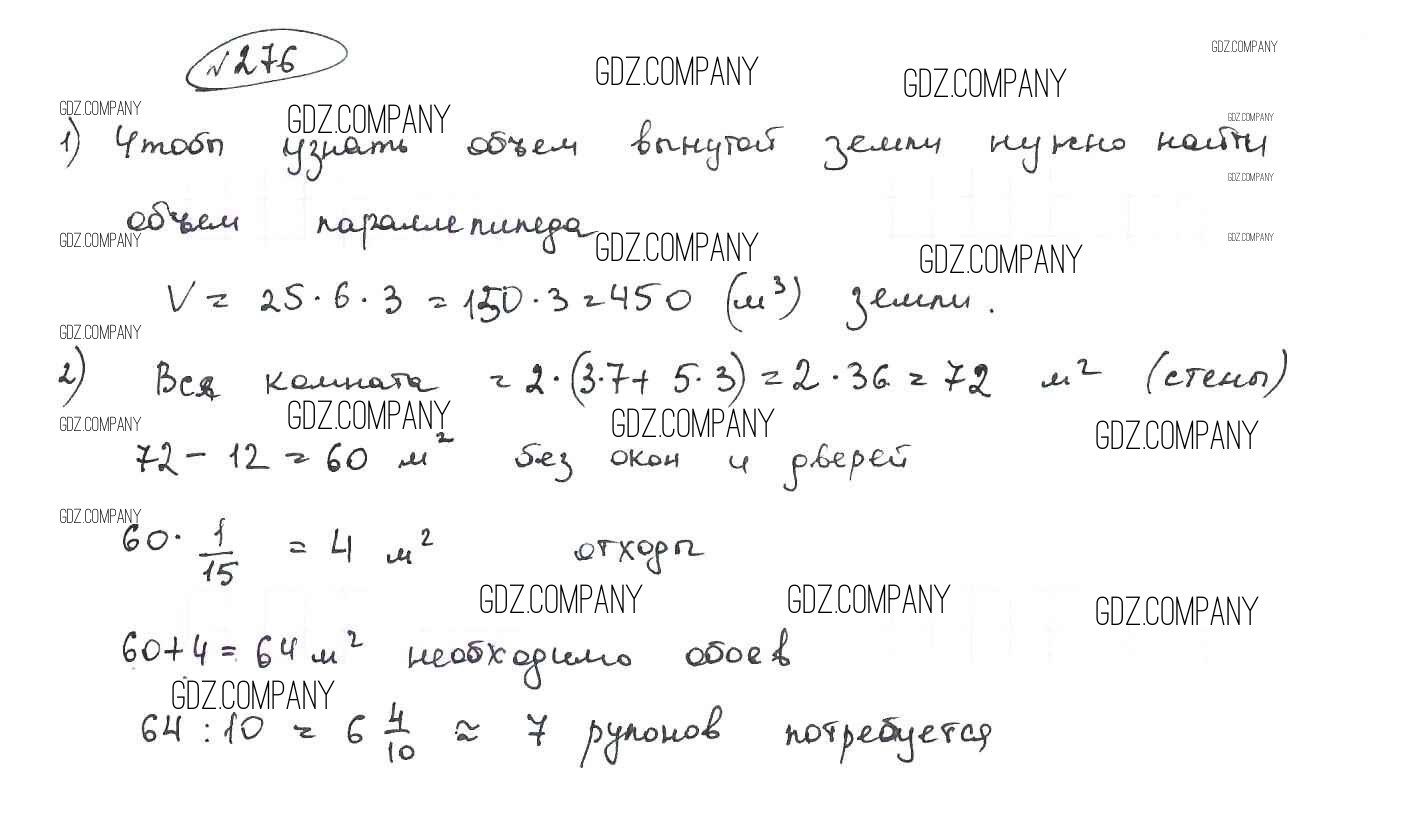 №276
GDZ.COMPANY
GDZ.COMPANY GDZ.COMPANY
GDZ.COMPANY GDZ.COMPANY GDZ.COMPANY
1) Чтобы узнать объем вынутой земли нужно найти
GDZ.COMPANY
объем параллепипеда
GDZ.COMPANY GDZ.COMPANY GDZ.COMPANY GDZ.COMPANY
V = 25·6·3 = 150·3 = 450 (м³) земли.
GDZ.COMPANY
2) Вся комната = 2·(3·7+ 5·3) = 2·36 = 72 м² (стены)
GDZ.COMPANY GDZ.COMPANY GDZ.COMPANY GDZ.COMPANY
72 - 12 = 60 м² без окон и дверей
GDZ.COMPANY
60· 1/15 = 4 м² отходы
GDZ.COMPANY GDZ.COMPANY GDZ.COMPANY
60+4 = 64 м² необходимо обоев
GDZ.COMPANY
64 : 10 = 6 4/10 ≈ 7 рулонов потребуется